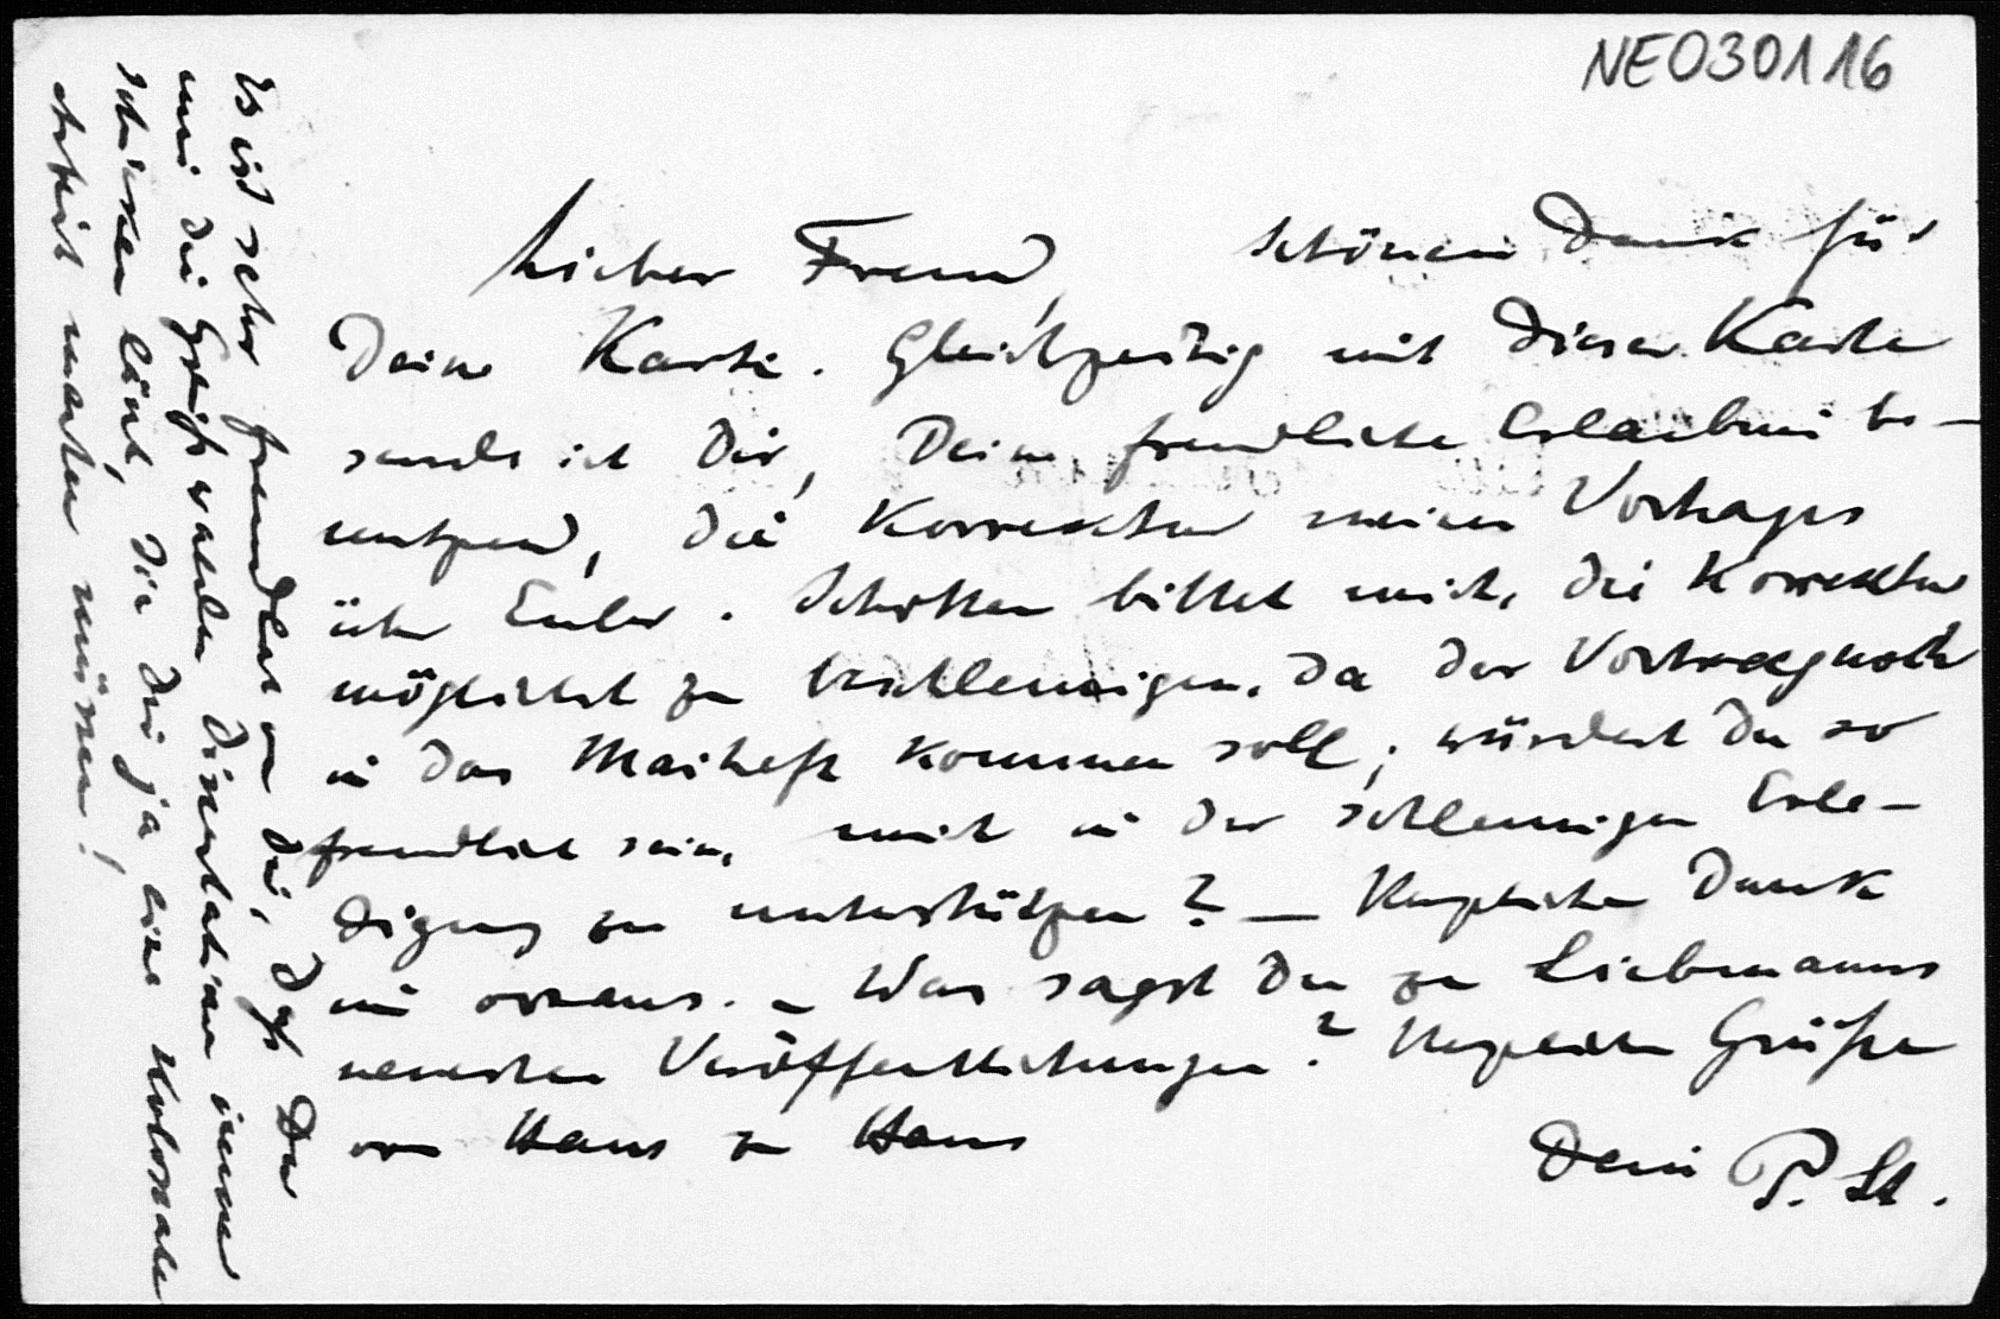 NE030116
Lieber Freund, schönen Dank für
Deine Karte. Gleichzeitig mit dieser Karte
sende ich Dir, Deine freundliche Erlaubnis be-
nutzend, die Korrektur meines Vortrages
über Euler. Schotten bittet mich, die Korrektur
möglichst zu beschleunigen, da der Vortrag noch
in das Maiheft kommen soll; würdest Du so
freundlich sein, mich in der schleunigen Erle-
digung zu unterstützen? — Herzlichen Dank
im voraus. – Was sagst Du zu Liebmanns
neuesten Veröffentlichungen? Herzliche Grüße
von Haus zu Haus
Dein P. St.
Es ist sehr freundlich von Dir, daß Du
mir die Greifswalder Dissertationen immer
schicken läßt, die Dir ja eine kolossale
Arbeit machen müssen!